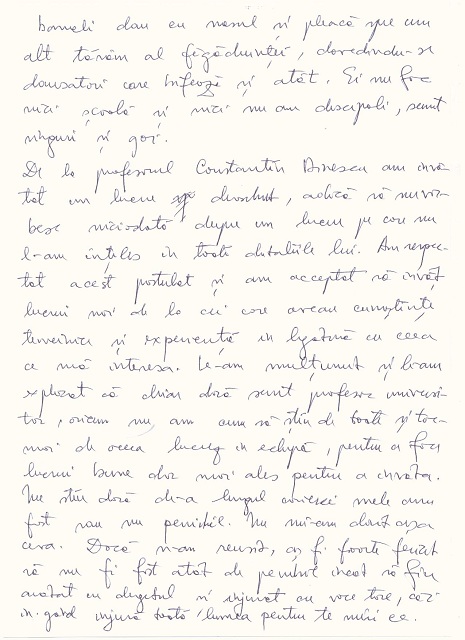 banali dau cu nasul și pleacă spre un
alt tărâm al făgăduinței, dovedindu-se
dansatori care înfeoză și atât. Ei nu fac
nici școală și nici nu au discipoli, sunt
singuri și goi.
De la profesorul Constantin Dinescu am învă-
țat un lucru deosebit, adică să nu vor-
besc niciodată despre un lucru pe care nu
l-am înțeles în toate detaliile lui. Am respec-
tat acest postulat și am acceptat să învăț
lucruri noi de la cei care aveau cunoștințe
temeinice și experiență în legătură cu ceea
ce mă interesa. Le-am mulțumit și le-am
explicat că chiar dacă sunt profesor universi-
tar, oricum nu am cum să știu de toate și toc-
mai de aceea lucrez în echipă, pentru a face
lucruri bune dar mai ales pentru a învăța.
Nu știu dacă de-a lungul carierei mele am
fost sau nu penibil. Nu mi-am dorit așa
ceva. Dacă n-am reușit, aș fi foarte fericit
să nu fi fost atât de penibil încât să fiu
arătat cu degetul și înjurat cu voce tare, căci
în gând înjură toată lumea pentru te miri ce.